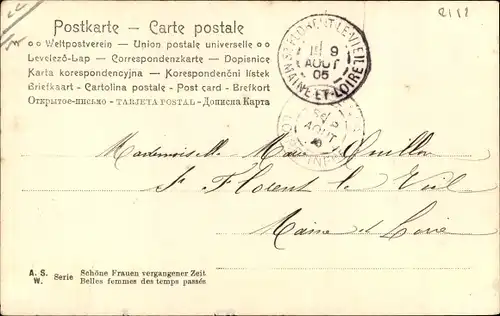 Postkarte – Carte postale
Weltpostverein – Union postale universelle
Levelező-Lap – Correspondenzkarte – Dopisnice
Karta korespondencyjna – Korespondenční lístek
Briefkaart – Cartolina postale – Post card – Brefkort
Открытое-письмо – TARJETA POSTAL – Дописна Карта
ST FLORENT-LE-VIEIL
9
AOUT
05
MAINE-ET-LOIRE
AOUT
Mademoiselle Marie Guillou
St Florent le Vieil
Maine et Loire
A. S. W. Serie
Schöne Frauen vergangener Zeit
Belles femmes des temps passés